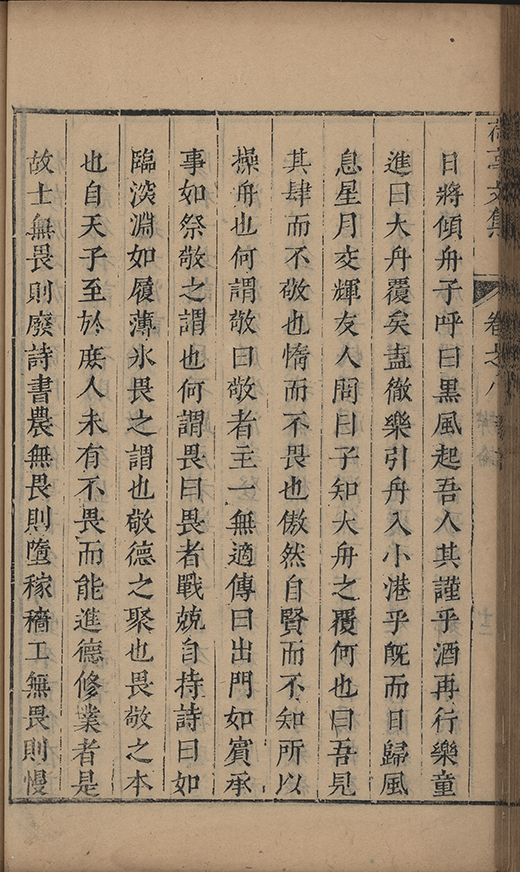 荷亭文集
卷之八
日將傾舟子呼曰黒風起吾人其謹乎酒再行樂童
進曰大舟覆矣盍徹樂引舟入小港乎旣而日歸風
息星月交輝友人問曰子知大舟之覆何也曰吾見
其肆而不敬也惰而不畏也傲然自賢而不知所以
操舟也何謂敬曰敬者主一無適傳曰出門如賓承
事如祭敬之謂也何謂畏曰畏者戰兢自持詩曰如
臨淡淵如履薄氷畏之謂也敬德之聚也畏敬之本
也自天子至於庶人未有不畏而能進德修業者是
故士無畏則廢詩書農無畏則墮稼穡工無畏則慢